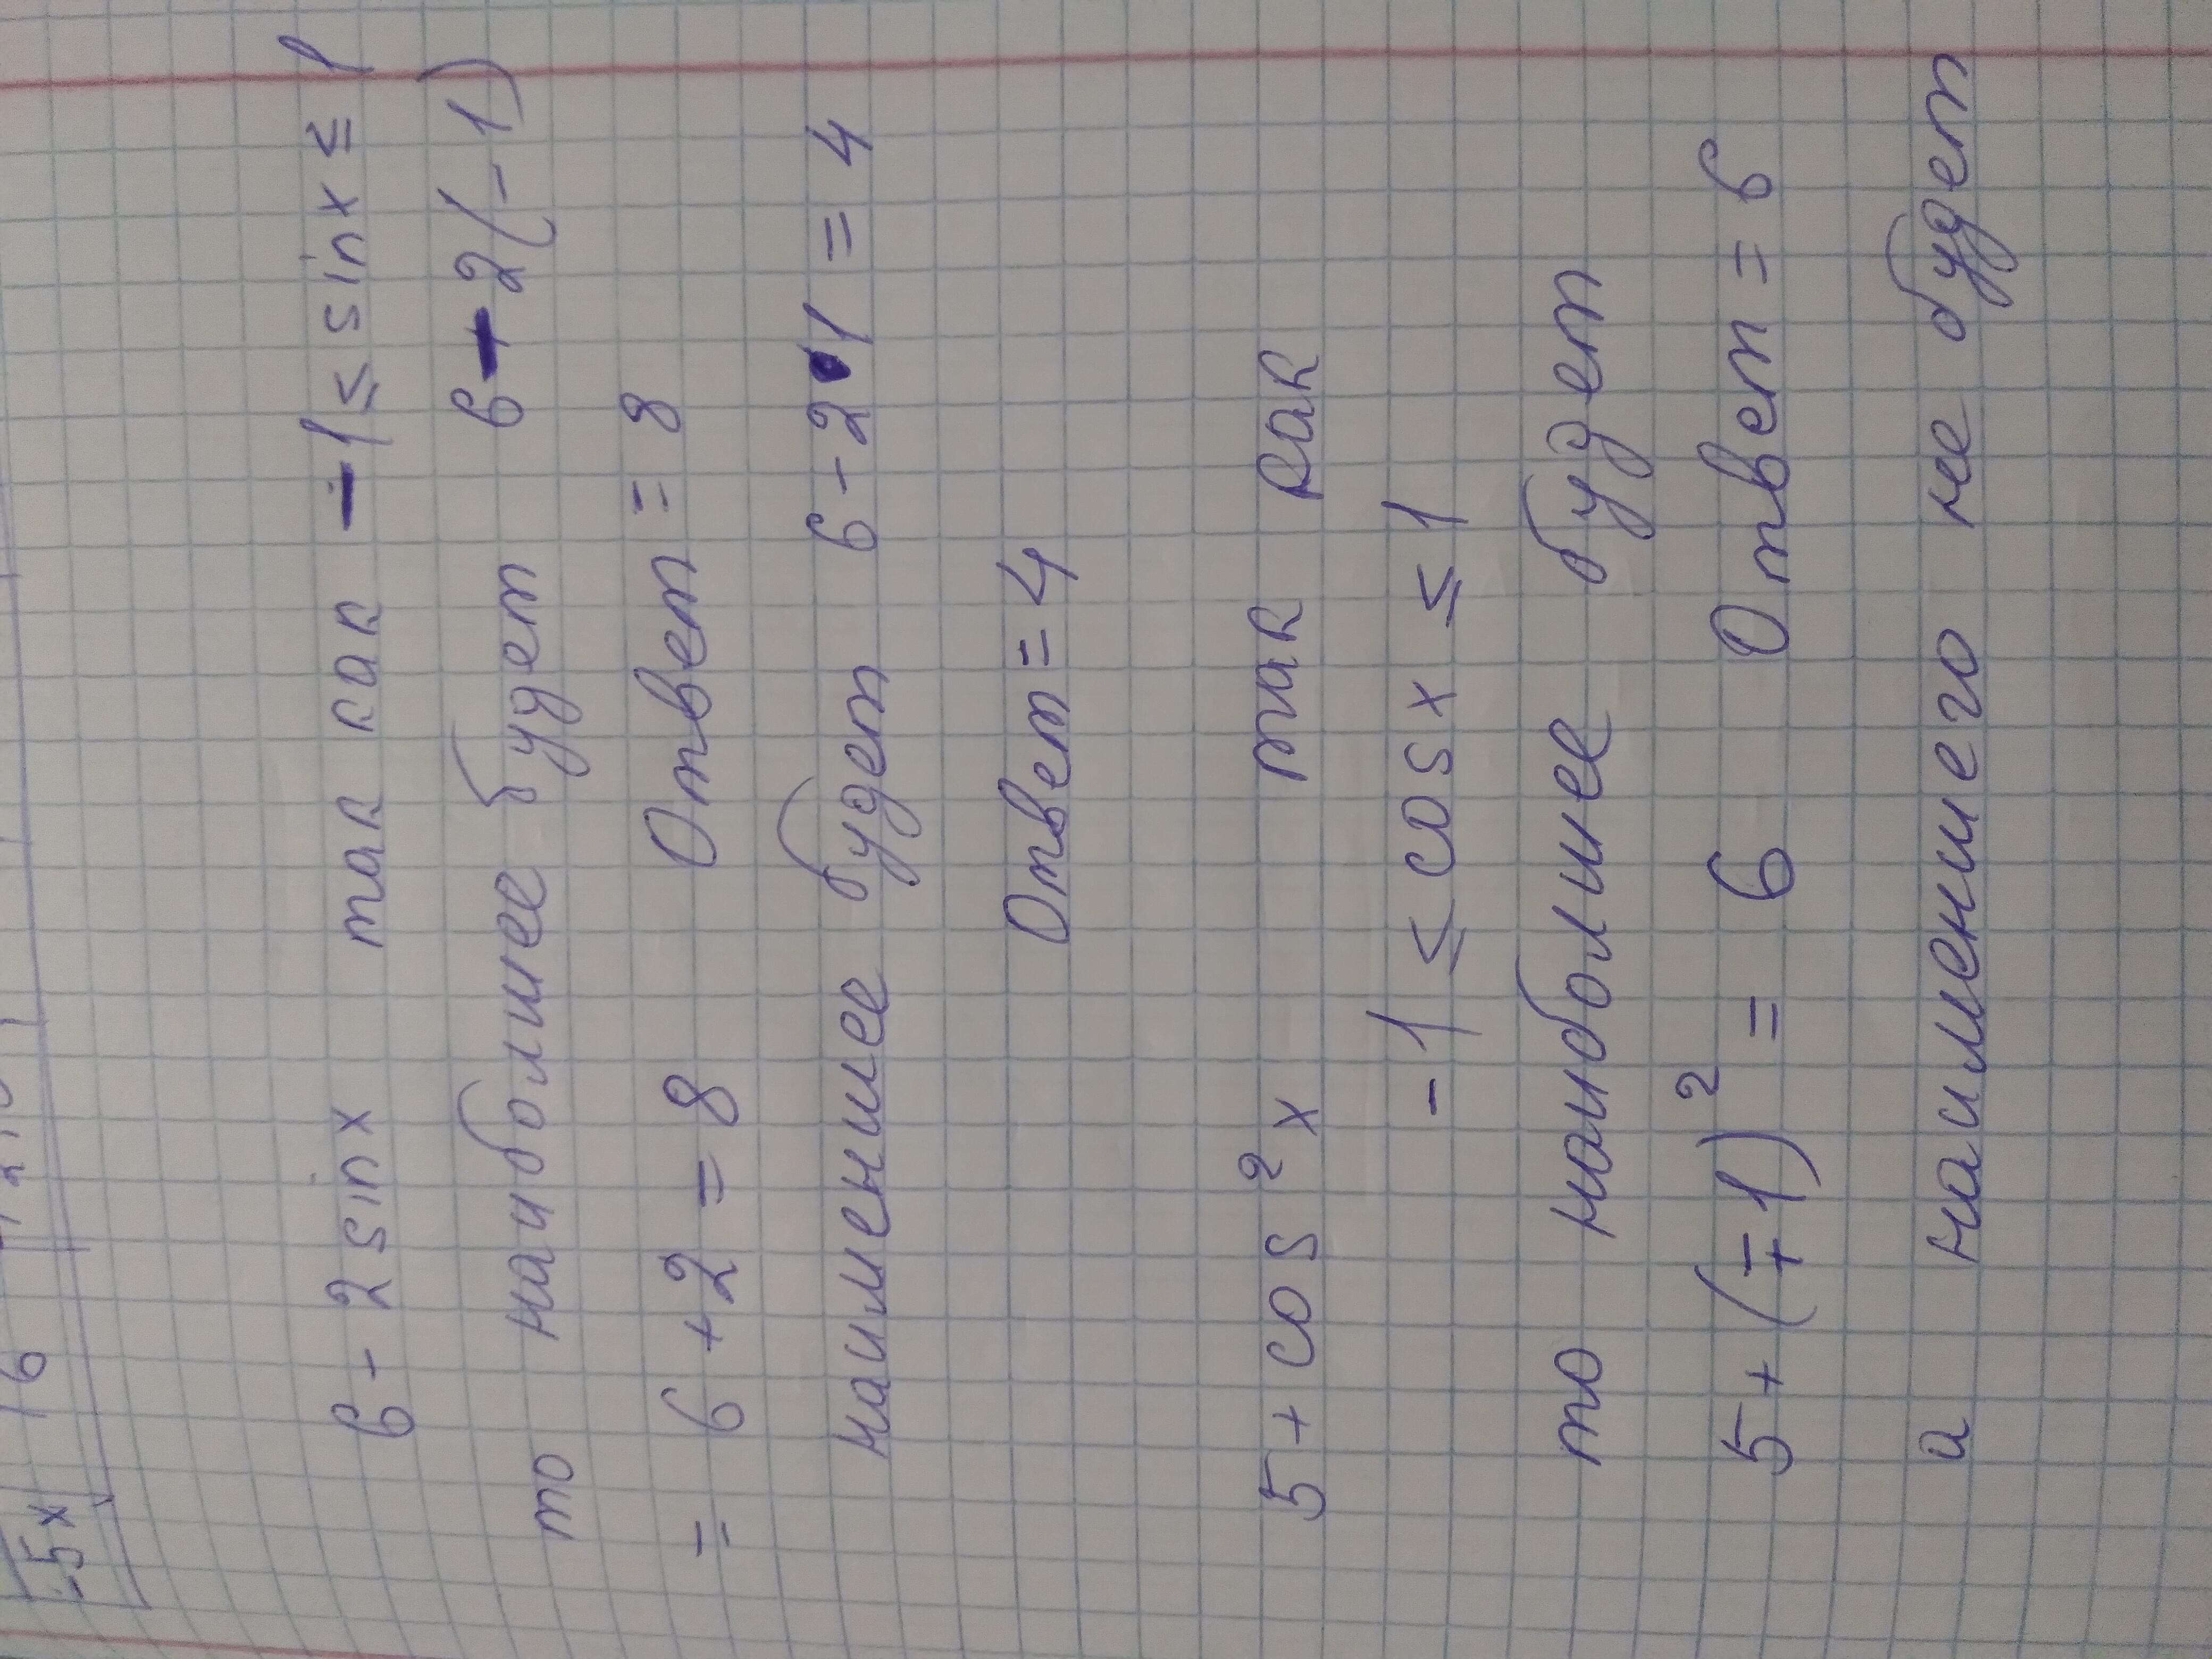 -5x 16
6 - 2 sin x так как -1 ≤ sin x ≤ 1
то наибольшее будет 6 - 2(-1)
= 6 + 2 = 8 Ответ = 8
наименьшее будет 6 - 2·1 = 4
Ответ = 4
5 + cos²x так как
-1 ≤ cos x ≤ 1
то наибольшее будет
5 + (∓1)² = 6 Ответ = 6
а наименьшего не будет